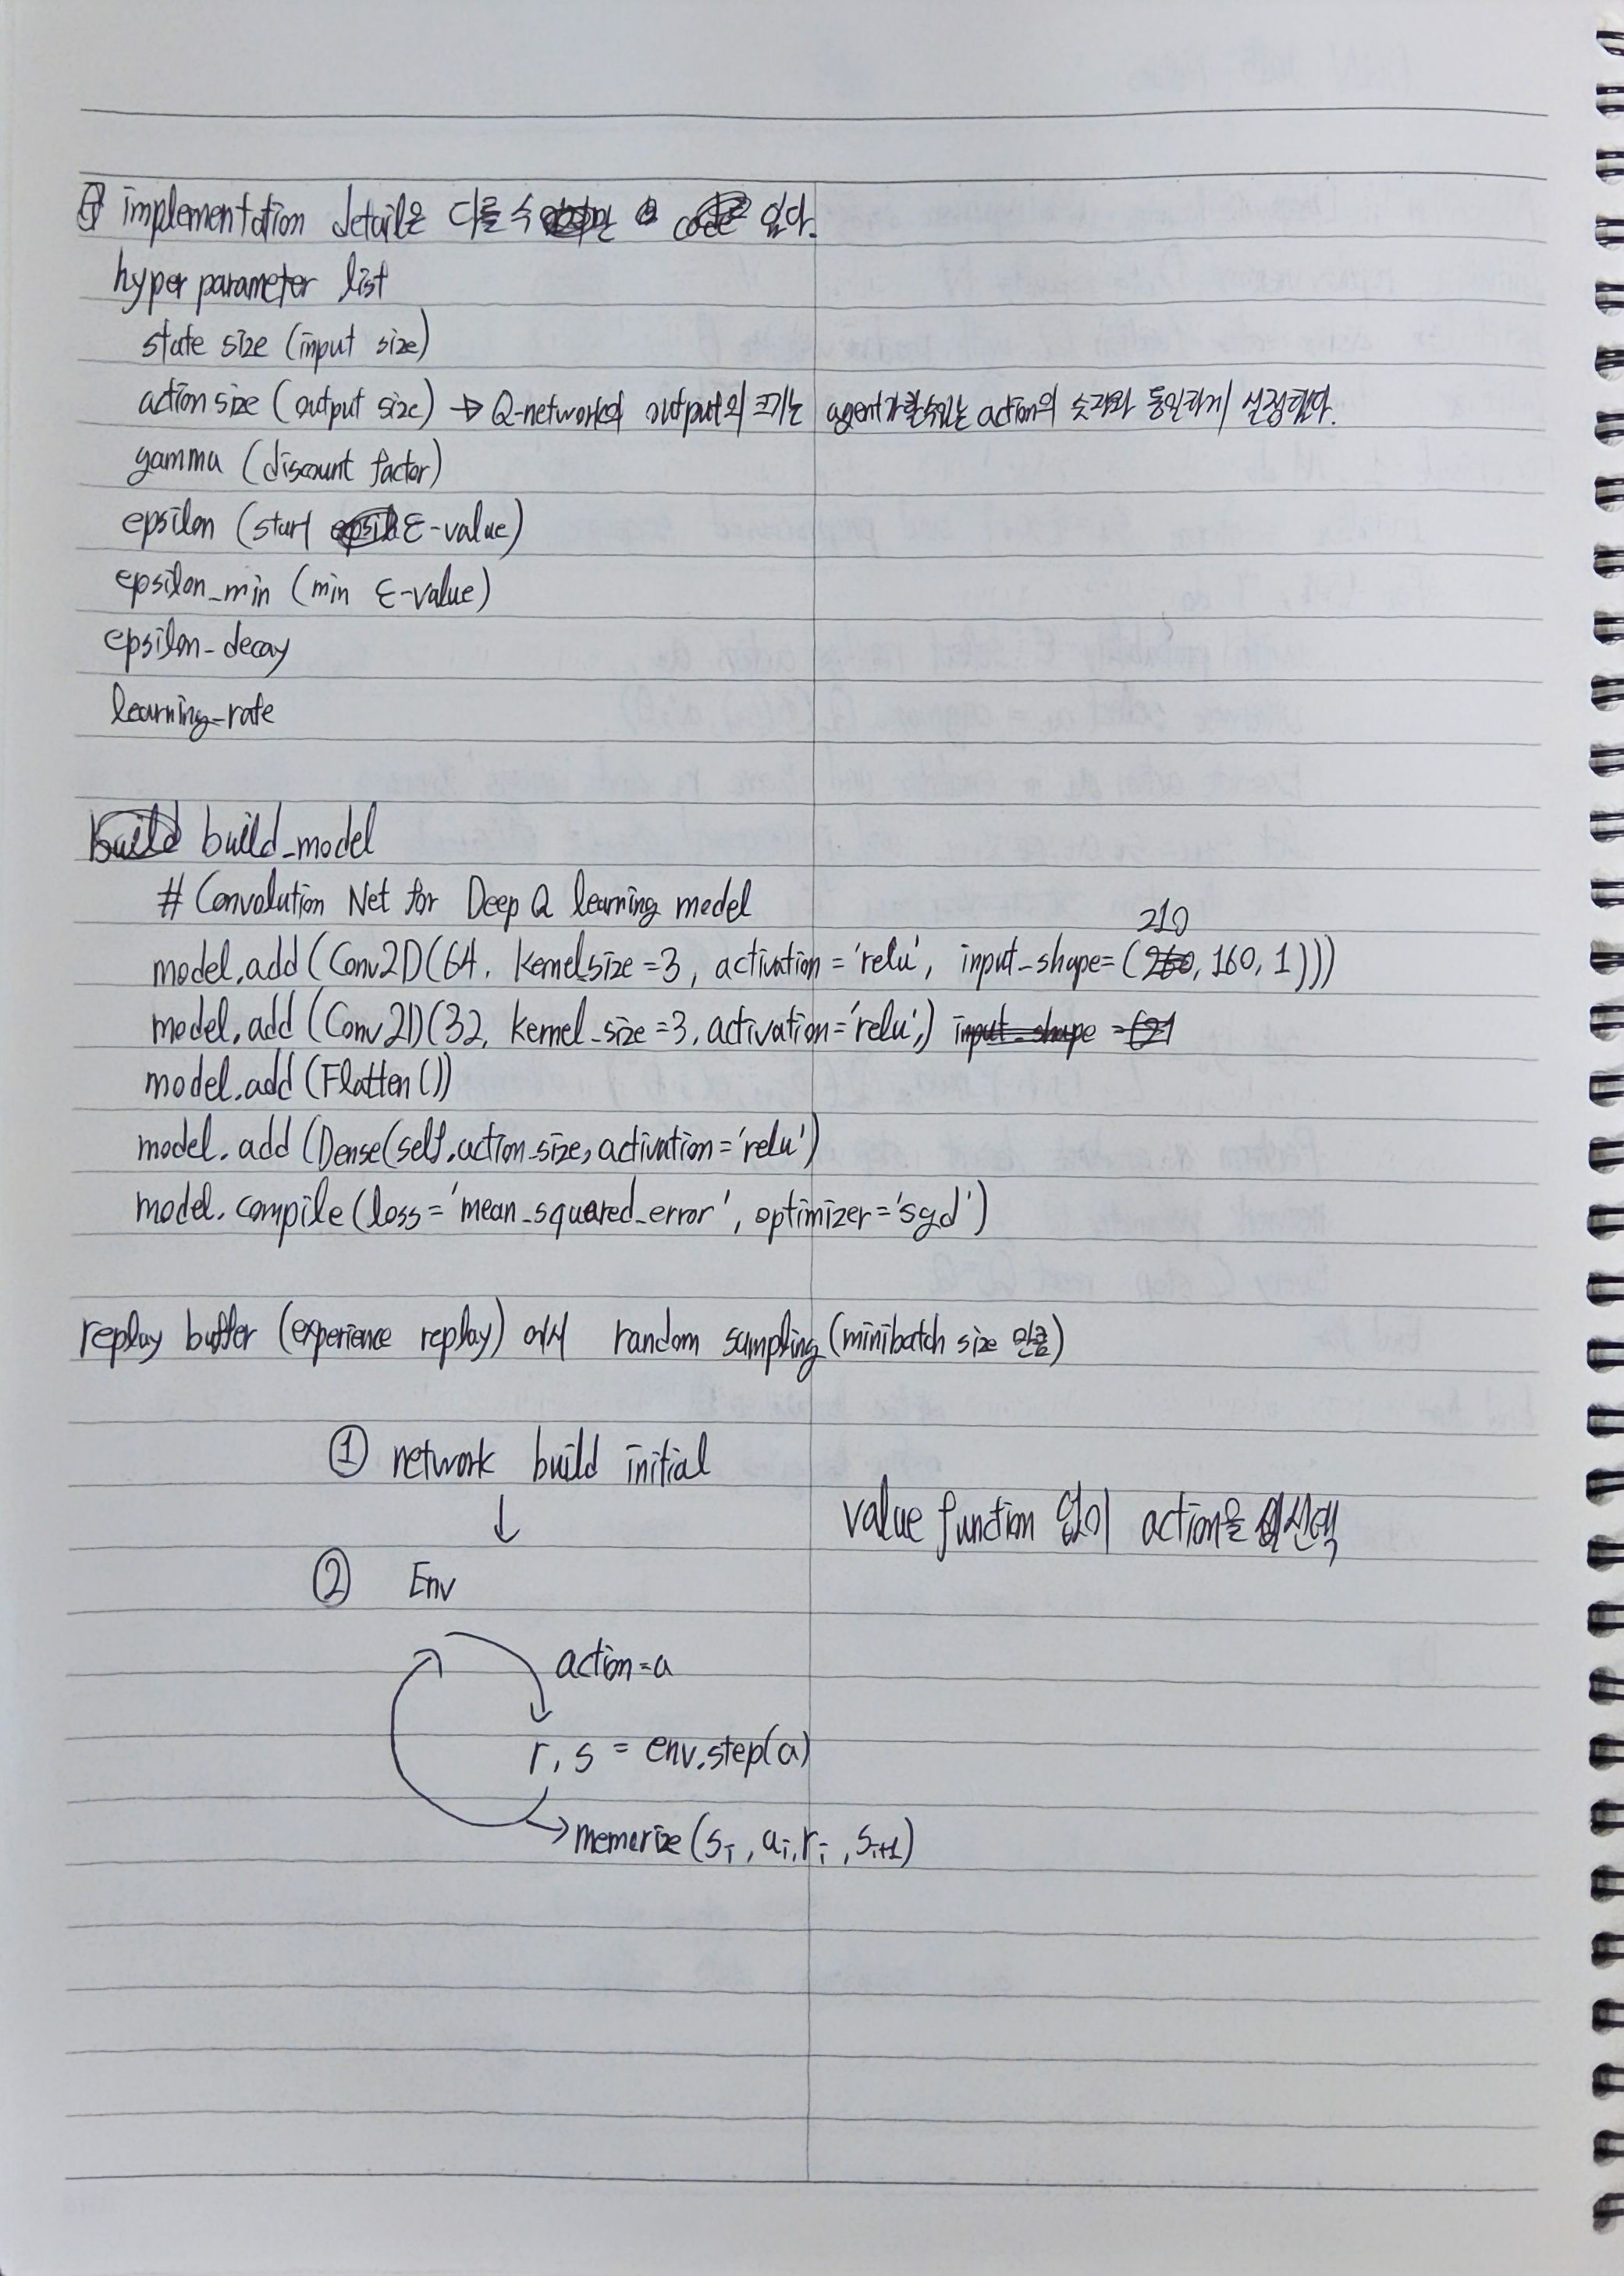 implementation detail은 다를 수 있다.
hyper parameter list
state size (input size)
action size (output size) → Q-network의 output의 크기는 agent가 할 수 있는 action의 숫자와 동일하게 설정한다.
gamma (discount factor)
epsilon (start ε-value)
epsilon_min (min ε-value)
epsilon-decay
learning-rate
build_model
# Convolution Net for Deep Q learning model
210
model.add(Conv2D(64, kernel_size=3, activation='relu', input_shape=(260, 160, 1)))
model.add(Conv2D(32, kernel_size=3, activation='relu',) input_shape =(21
model.add(Flatten())
model.add(Dense(self.action_size, activation='relu')
model.compile(loss='mean_squared_error', optimizer='sgd')
replay buffer (experience replay) 에서 random sampling (minibatch size 만큼)
① network build initial
↓
value function 없이 action을 선택
② Env
action=a
r, s = env.step(a)
→ memorize(sᵢ, aᵢ, rᵢ, sᵢ₊₁)